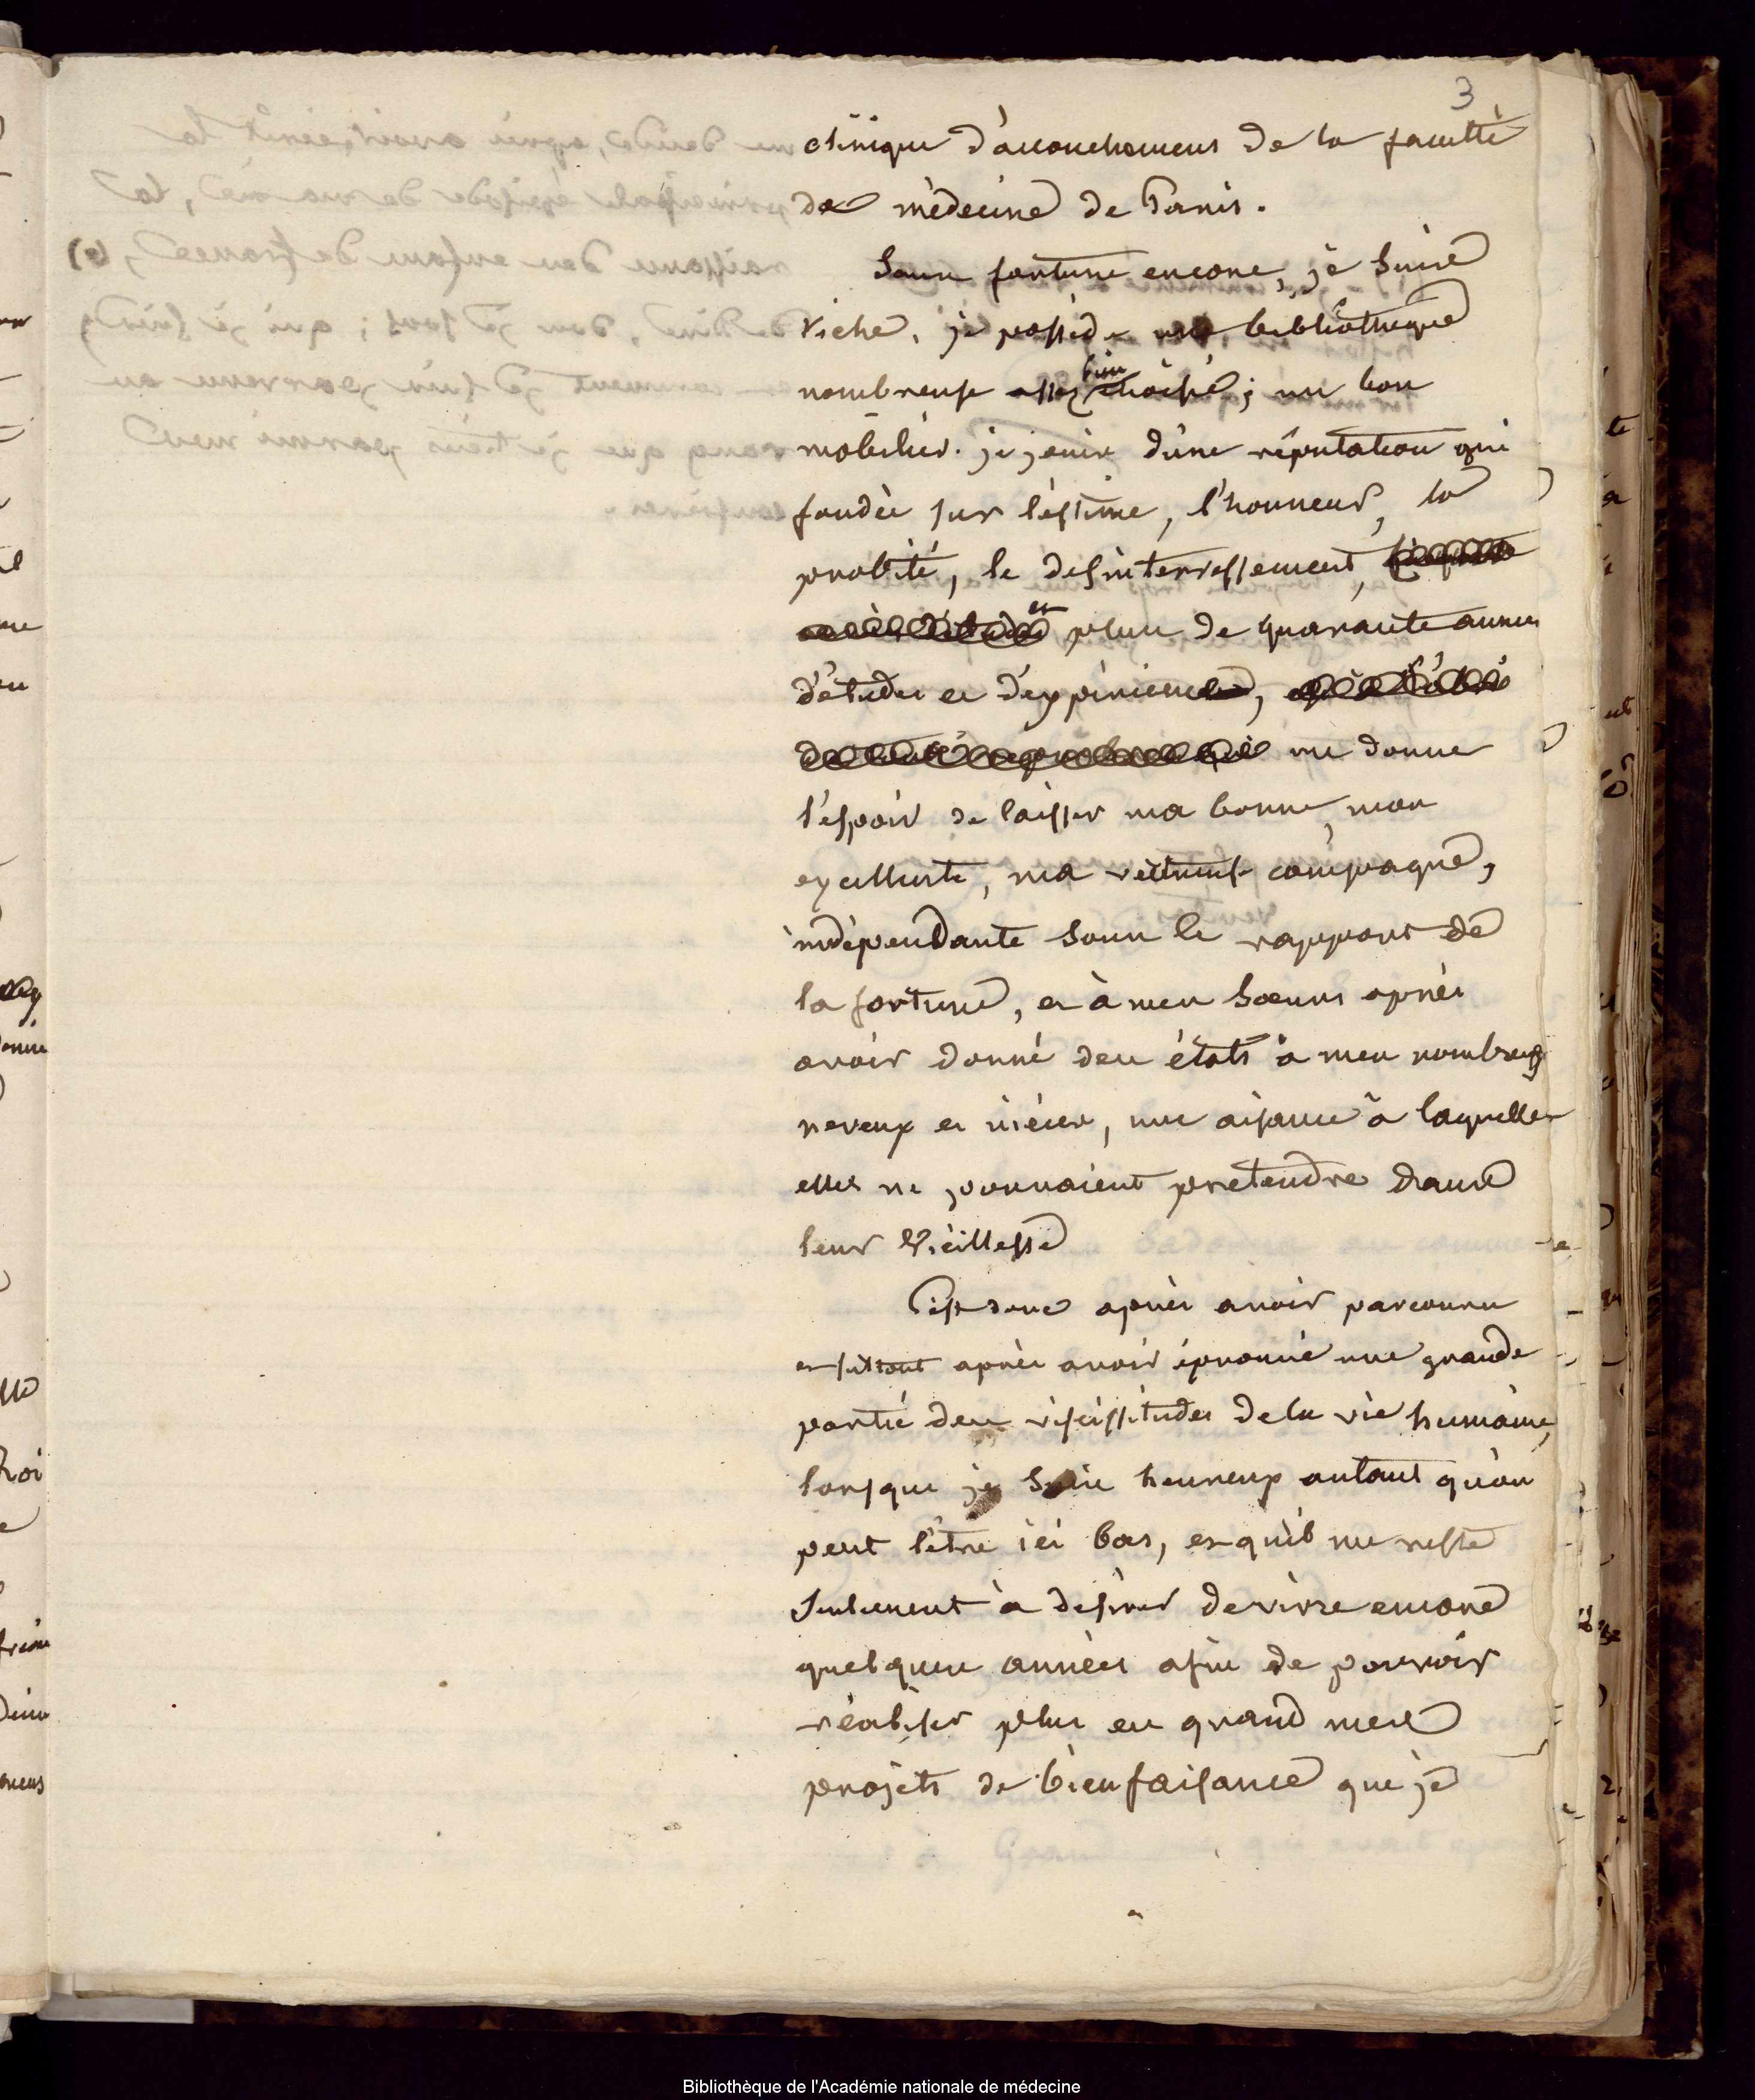 3
clinique d'accouchemens de la faculté
de médecine de Paris.
Sans fortune encore, je suis
riche. je possède une bibliothèque
nombreuse assez bien choisie; un bon
mobilier. je jouis d'une réputation qui
fondée sur l'estime, l'honneur, la
probité, le desinterressement,
et plus de quarante annees
d'études et d'expérience, me donne
l'espoir de laisser ma bonne, mon
excellente, ma vertueuse compagne,
indépendante sous le rapport de
la fortune, et à mes soeurs après
avoir donné des états à mes nombreux
neveux et nièces, une aisance à laquelle
elles ne pourraient pretendre dans
leur vieillesse
C'est donc après avoir parcouru
et surtout après avoir éprouvé une grande
partie des vicissitudes de la vie humaine,
lorsque je suis heureux autant qu'on
peut l'être ici bas, et qu'il me reste
seulement à désirer de vivre encore
quelques années afin de pouvoir
réaliser plus en grand mes
projets de bienfaisance que je
Bibliothèque de l'Académie nationale de médecine